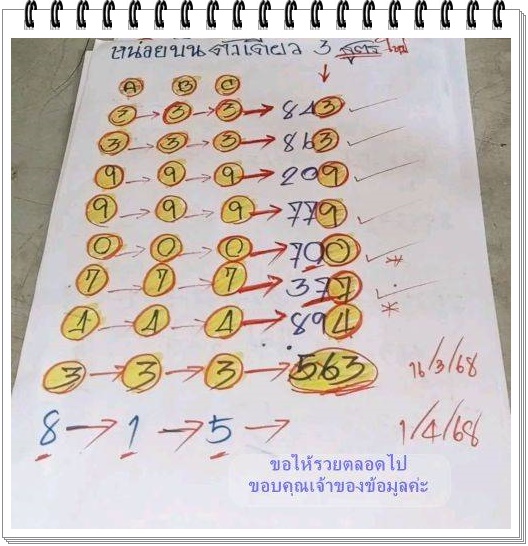 หน่อยบน ตัวเดียว 3 สูตร ใหม่
A B C
3 → 3 → 3 → 843
3 → 3 → 3 → 863
9 → 9 → 9 → 209
9 → 9 → 9 → 779
0 → 0 → 0 → 700 *
7 → 7 → 7 → 377 *
4 → 4 → 4 → 894
3 → 3 → 3 → 563 16/3/68
8 → 1 → 5 → 1/4/68
ขอให้รวยตลอดไป
ขอบคุณเจ้าของข้อมูลค่ะ